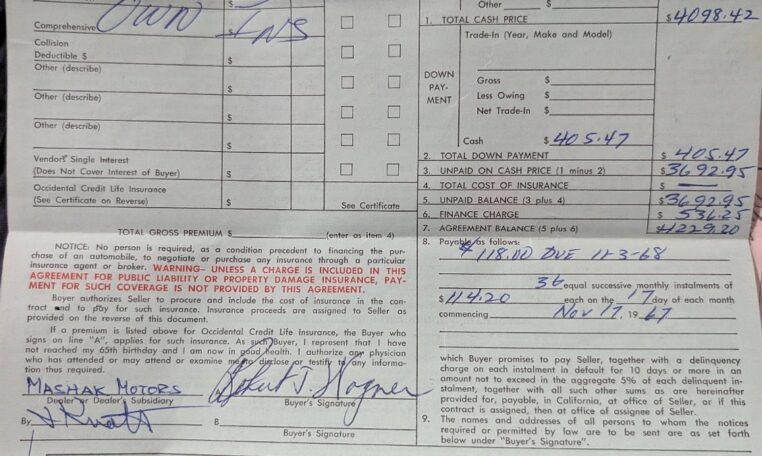 Other $
1. TOTAL CASH PRICE $4098.42
Comprehensive OWN INS
$
Trade-In (Year, Make and Model)
Collision
Deductible $ $
DOWN PAYMENT
Gross $
Less Owing $
Net Trade-In $
Other (describe)
$
Other (describe)
$
Other (describe)
$
Cash $405.47
Vendors Single Interest
(Does Not Cover Interest of Buyer) $
2. TOTAL DOWN PAYMENT $405.47
3. UNPAID ON CASH PRICE (1 minus 2) $3692.95
4. TOTAL COST OF INSURANCE $ —
Occidental Credit Life Insurance
(See Certificate on Reverse) $ See Certificate
5. UNPAID BALANCE (3 plus 4) $3692.95
6. FINANCE CHARGE $536.25
7. AGREEMENT BALANCE (5 plus 6) $4229.20
TOTAL GROSS PREMIUM $ (enter as item 4)
NOTICE: No person is required, as a condition precedent to financing the pur-
chase of an automobile, to negotiate or purchase any insurance through a particular
insurance agent or broker. WARNING— UNLESS A CHARGE IS INCLUDED IN THIS
AGREEMENT FOR PUBLIC LIABILITY OR PROPERTY DAMAGE INSURANCE, PAY-
MENT FOR SUCH COVERAGE IS NOT PROVIDED BY THIS AGREEMENT.
Buyer authorizes Seller to procure and include the cost of insurance in the con-
tract and to pay for such insurance. Insurance proceeds are assigned to Seller as
provided on the reverse of this document.
If a premium is listed above for Occidental Credit Life Insurance, the Buyer who
signs on line "A", applies for such insurance. As such Buyer, I represent that I have
not reached my 65th birthday and I am now in good health. I authorize any physician
who has attended or may attend or examine me to disclose or testify to any informa-
tion thus required.
MASHAK MOTORS
Dealer or Dealer's Subsidiary
Buyer's Signature
By
B
Buyer's Signature
8. Payable as follows:
$118.00 DUE 11-3-68
36 equal successive monthly instalments of
$114.20 each on the 17 day of each month
commencing Nov 17, 1967
which Buyer promises to pay Seller, together with a delinquency
charge on each instalment in default for 10 days or more in an
amount not to exceed the aggregate 5% of each delinquent in-
stalment, together with all such other sums as are hereinafter
provided for, payable, in California, at office of Seller, or if this
contract is assigned, then at office of assignee of Seller.
9. The names and addresses of all persons to whom the notices
required or permitted by law are to be sent are as set forth
below under "Buyer's Signature".